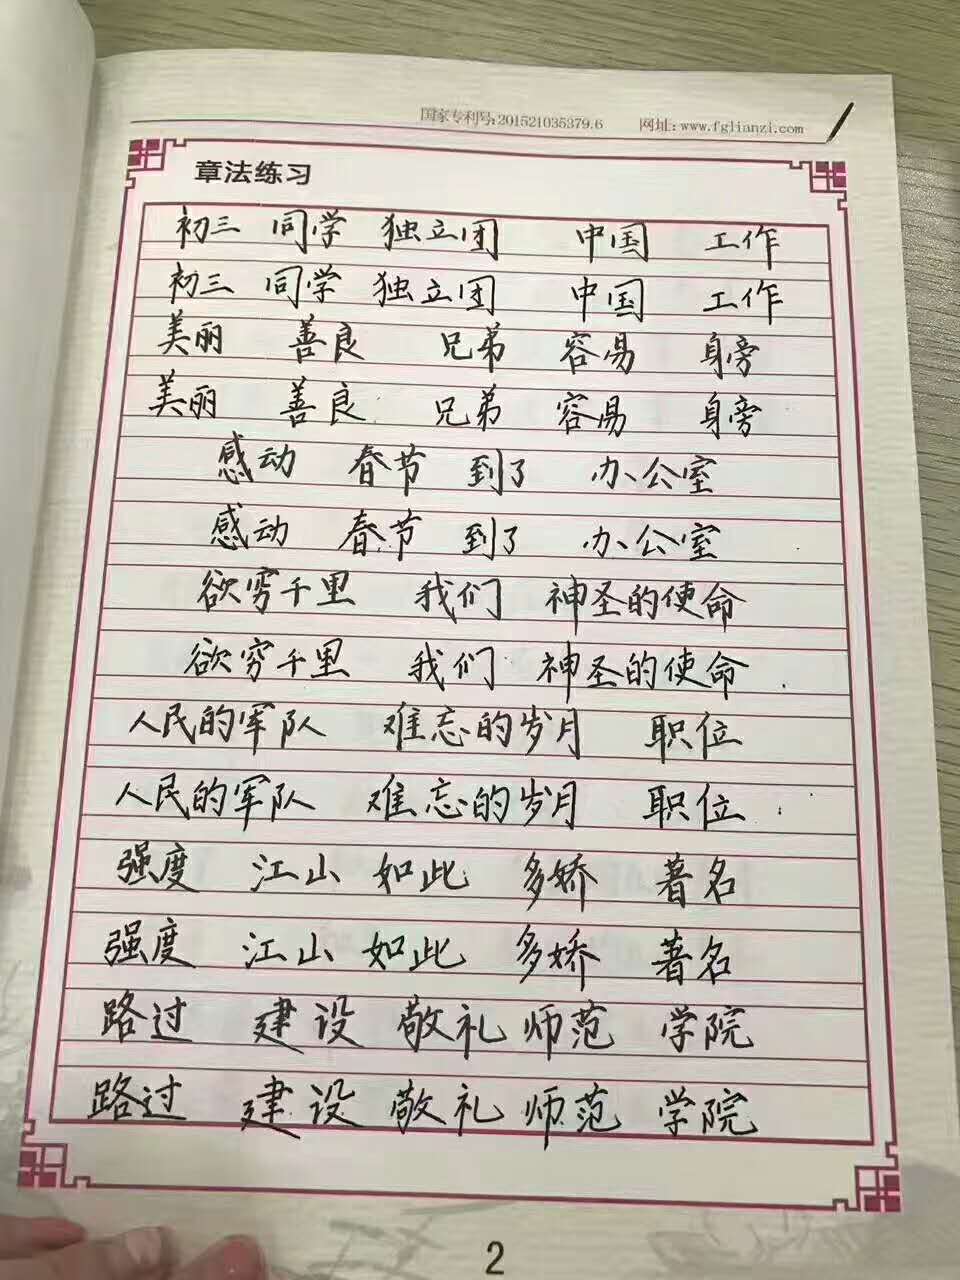 国家专利号:201521035379.6 网址:www.fglianzi.com
章法练习
初三 同学 独立团 中国 工作
初三 同学 独立团 中国 工作
美丽 善良 兄弟 容易 身旁
美丽 善良 兄弟 容易 身旁
感动 春节 到了 办公室
感动 春节 到了 办公室
欲穷千里 我们 神圣的使命
欲穷千里 我们 神圣的使命
人民的军队 难忘的岁月 职位
人民的军队 难忘的岁月 职位
强度 江山 如此 多娇 著名
强度 江山 如此 多娇 著名
路过 建设 敬礼 师范 学院
路过 建设 敬礼 师范 学院
2